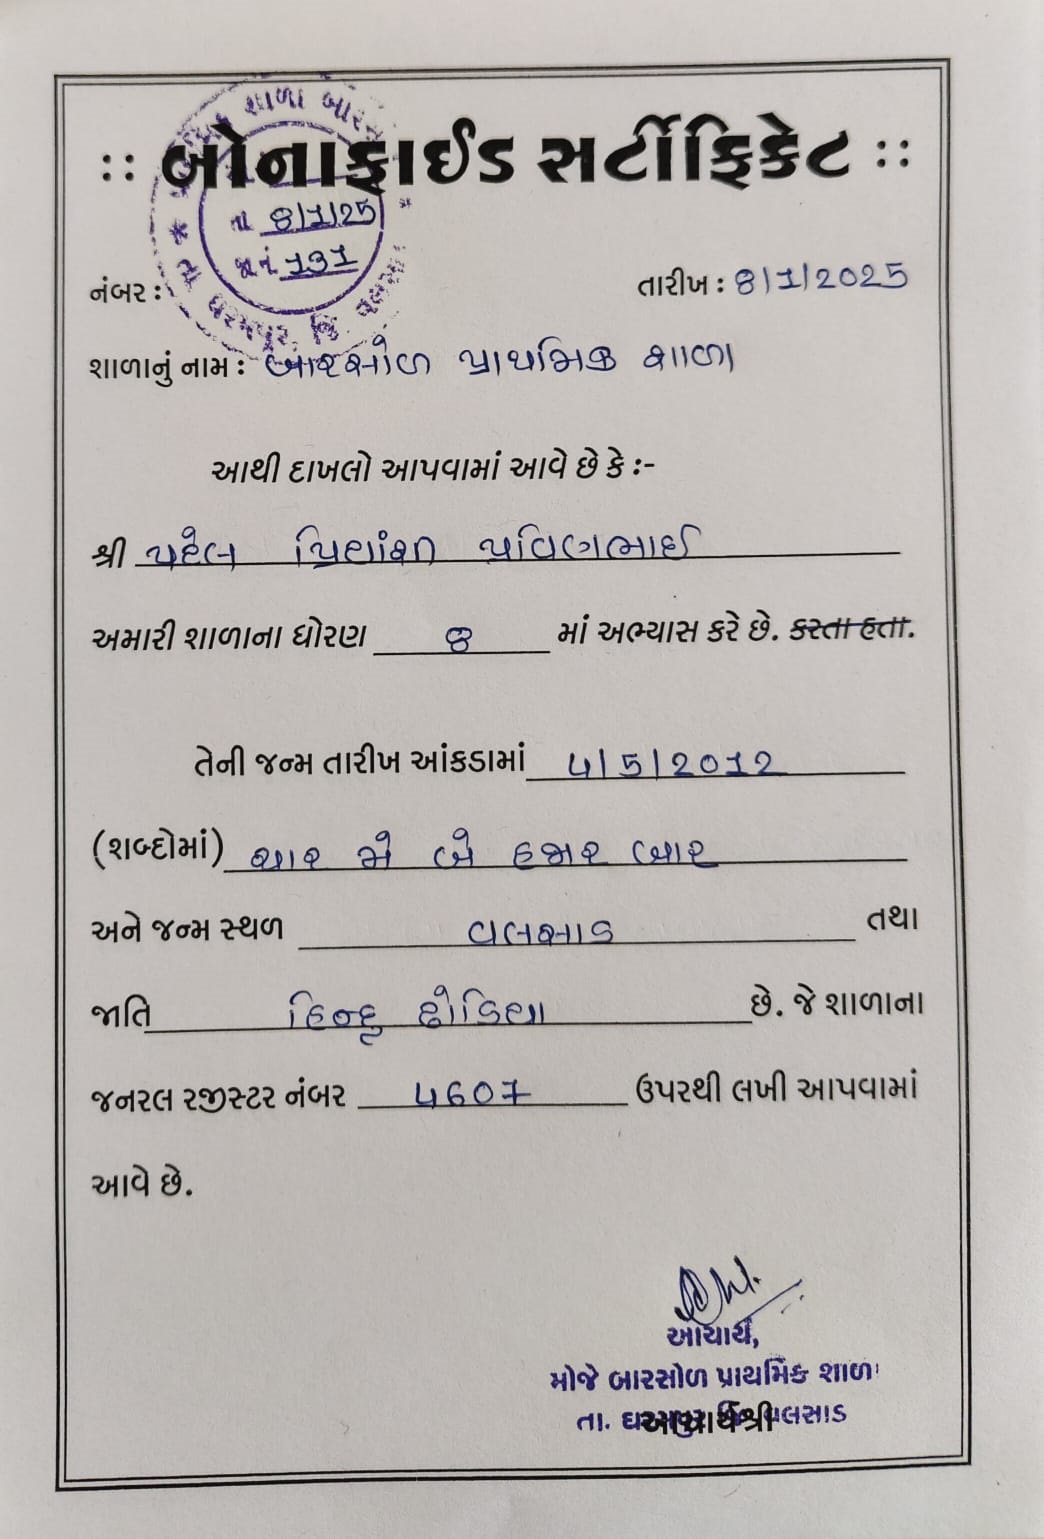 શાળા બારસ
:: બોનાફાઈડ સર્ટીફિકેટ ::
તા 8/1/25
જા નં. 131
તા ધરમપુર, જિ. વલસા
નંબર : તારીખ : 8/1/2025
શાળાનું નામ : બારસોળ પ્રાથમિક શાળા
આથી દાખલો આપવામાં આવે છે કે :-
શ્રી પટેલ પ્રિયાંશી પ્રવિણભાઈ
અમારી શાળાના ધોરણ ૭ માં અભ્યાસ કરે છે. કરતા હતા.
તેની જન્મ તારીખ આંકડામાં 4/5/2012
(શબ્દોમાં) ચાર મે બે હજાર બાર
અને જન્મ સ્થળ વલસાડ તથા
જાતિ હિન્દુ ઢોડિયા છે. જે શાળાના
જનરલ રજીસ્ટર નંબર 4607 ઉપરથી લખી આપવામાં
આવે છે.
આચાર્ય,
મોજે બારસોળ પ્રાથમિક શાળા
તા. ધરમપુર જિ. વલસાડ
આચાર્યશ્રી